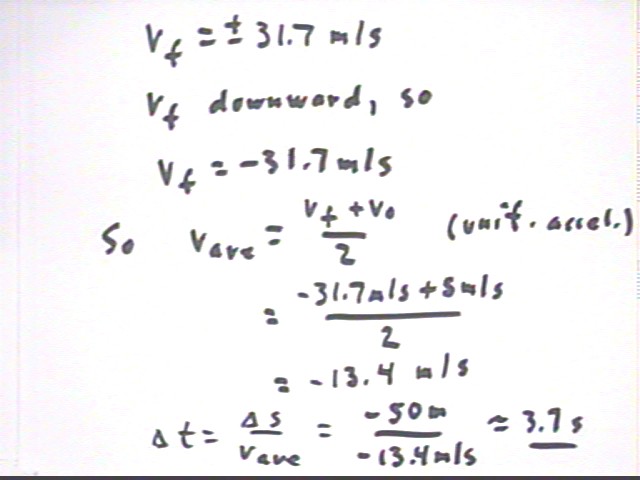 Vf = ± 31.7 m/s
Vf downward, so
Vf = -31.7 m/s
So Vave = (Vf + V0)/2 (unif. accel.)
= (-31.7 m/s + 5 m/s)/2
= -13.4 m/s
Δt = Δs/Vave = -50 m/-13.4 m/s ≈ 3.7 s